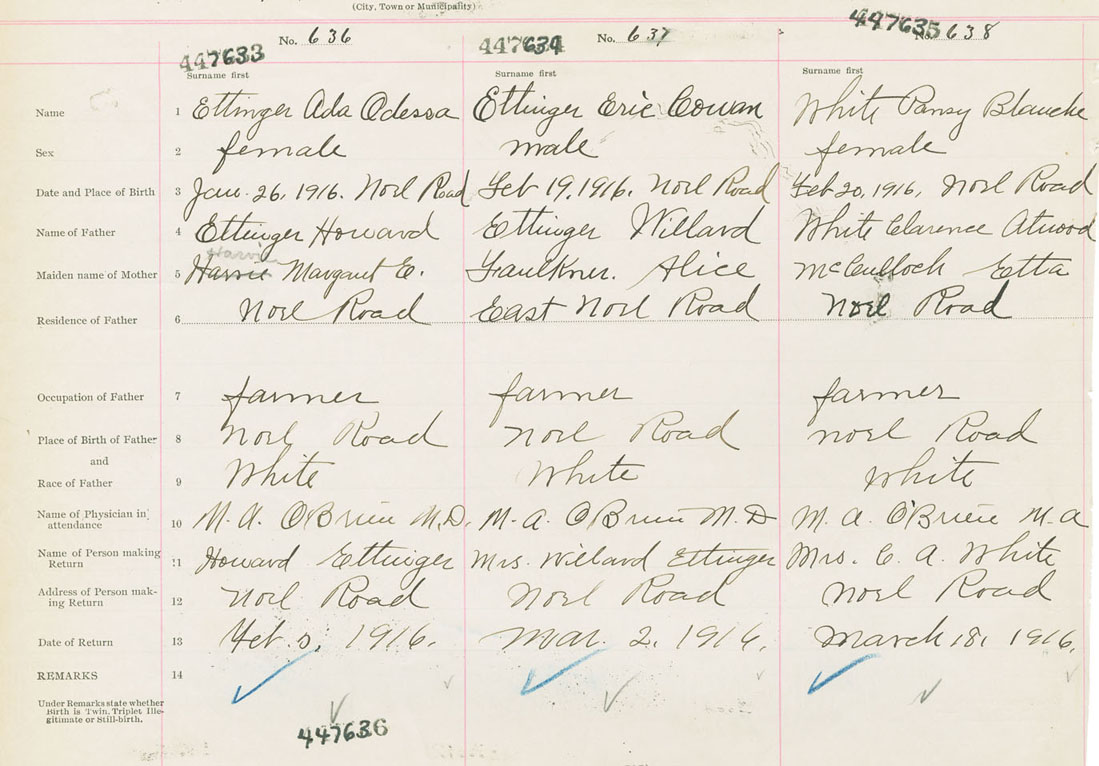 (City, Town or Municipality)
No. 636 No. 637 No. 638
447633 447634 447635
Surname first Surname first Surname first
Name 1 Ettinger Ada Odessa Ettinger Eric Cowan White Pansy Blanche
Sex 2 female male female
Date and Place of Birth 3 Jan. 26, 1916. Noel Road Feb 19, 1916. Noel Road Feb 20, 1916, Noel Road
Name of Father 4 Ettinger Howard Ettinger Willard White Clarence Atwood
Harvie
Maiden name of Mother 5 Margaret E. Faulkner. Alice McCulloch Etta
Residence of Father 6 Noel Road East Noel Road Noel Road
Occupation of Father 7 farmer farmer farmer
Place of Birth of Father 8 Noel Road Noel Road Noel Road
and
Race of Father 9 White White White
Name of Physician in attendance 10 M. A. O'Brien M.D. M. A. O'Brien M.D M. A. O'Brien M.A
Name of Person making Return 11 Howard Ettinger Mrs. Willard Ettinger Mrs. C. A. White
Address of Person making Return 12 Noel Road Noel Road Noel Road
Date of Return 13 Feb. 1916. Mar. 2, 1916. March 18, 1916.
REMARKS 14
Under Remarks state whether
Birth is Twin, Triplet Ille-
gitimate or Still-birth.
447636